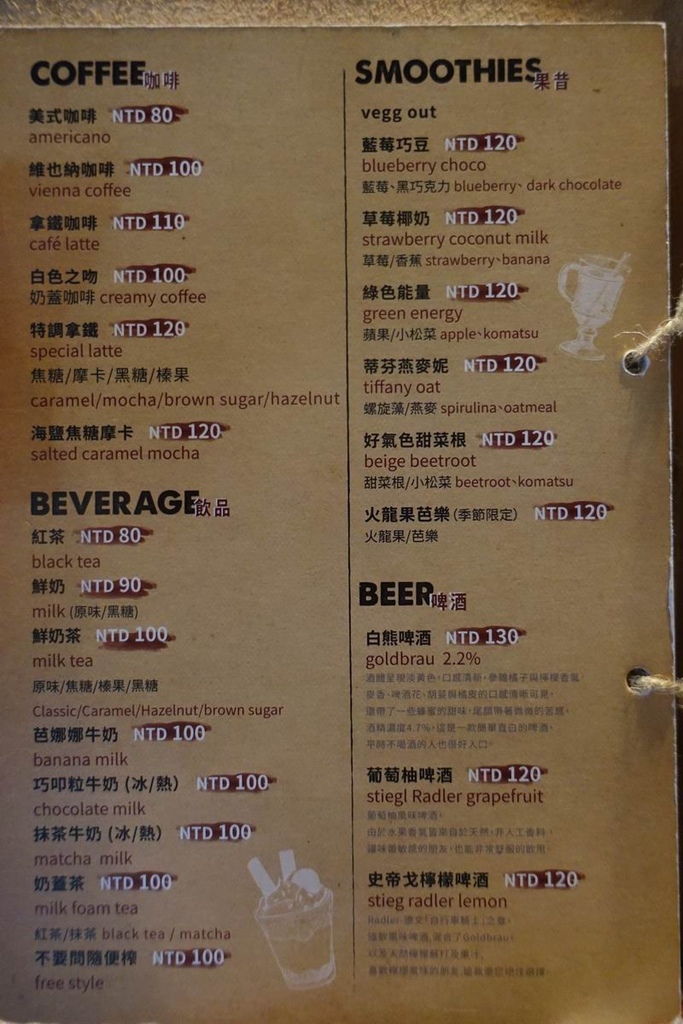 COFFEE咖啡
美式咖啡 NTD 80
americano
維也納咖啡 NTD 100
vienna coffee
拿鐵咖啡 NTD 110
café latte
白色之吻 NTD 100
奶蓋咖啡 creamy coffee
特調拿鐵 NTD 120
special latte
焦糖/摩卡/黑糖/榛果
caramel/mocha/brown sugar/hazelnut
海鹽焦糖摩卡 NTD 120
salted caramel mocha
BEVERAGE飲品
紅茶 NTD 80
black tea
鮮奶 NTD 90
milk (原味/黑糖)
鮮奶茶 NTD 100
milk tea
原味/焦糖/榛果/黑糖
Classic/Caramel/Hazelnut/brown sugar
芭娜娜牛奶 NTD 100
banana milk
巧叩粒牛奶 (冰/熱) NTD 100
chocolate milk
抹茶牛奶 (冰/熱) NTD 100
matcha milk
奶蓋茶 NTD 100
milk foam tea
紅茶/抹茶 black tea / matcha
不要問隨便榨 NTD 100
free style
SMOOTHIES果昔
vegg out
藍莓巧豆 NTD 120
blueberry choco
藍莓、黑巧克力 blueberry、dark chocolate
草莓椰奶 NTD 120
strawberry coconut milk
草莓/香蕉 strawberry、banana
綠色能量 NTD 120
green energy
蘋果/小松菜 apple、komatsu
蒂芬燕麥妮 NTD 120
tiffany oat
螺旋藻/燕麥 spirulina、oatmeal
好氣色甜菜根 NTD 120
beige beetroot
甜菜根/小松菜 beetroot、komatsu
火龍果芭樂 (季節限定) NTD 120
火龍果/芭樂
BEER啤酒
白熊啤酒 NTD 130
goldbrau 2.2%
酒體呈現淡黃色，口感清新，參雜橘子與檸檬香氣
麥香、啤酒花、胡荽與橘皮的口感慢慢可見，
還帶了一些蜂蜜的甜味，尾韻帶著微微的苦感。
酒精濃度4.7%，這是一款簡單直白的啤酒，
平時不喝酒的人也很好入口。
葡萄柚啤酒 NTD 120
stiegl Radler grapefruit
葡萄柚風味啤酒，
由於水果香氣皆來自於天然，非人工香料，
讓味蕾敏感的朋友，也能非常舒服的飲用。
史帝戈檸檬啤酒 NTD 120
stieg radler lemon